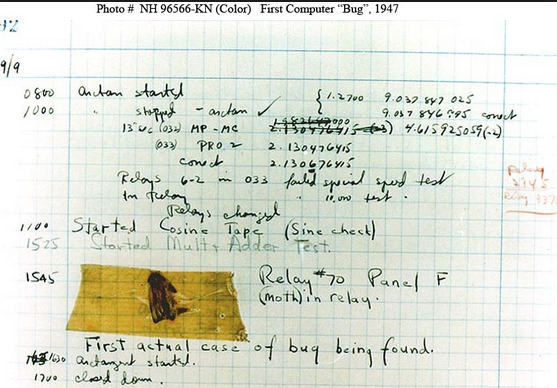 Photo # NH 96566-KN (Color) First Computer “Bug”, 1947
9/9
0800 Antan started
1000 " stopped - antan ✓ { 1.2700 9.037 847 025
9.037 846 995 conect
13"uc (032) MP - MC 2.130476415 4.615925059(-2)
(033) PRO 2 2.130476415
conect 2.130676415
Relays 6-2 in 033 failed special speed test
In Relay " 10,000 test.
Relay
Relays changed
1100 Started Cosine Tape (Sine check)
1525 Started Mult+ Adder Test.
1545 Relay #70 Panel F
(moth) in relay.
First actual case of bug being found.
1630 Antangent started.
1700 closed down.